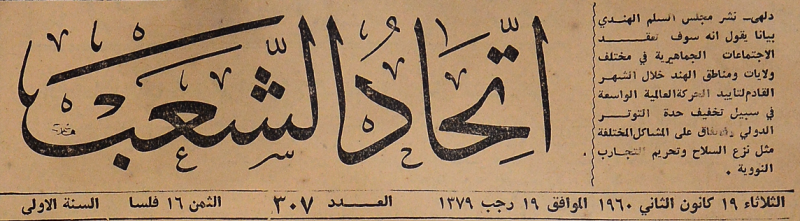 اتِّحَادُ الشَّعب
دلهي- نشر مجلس السلم الهندي
بيانا يقول انه سوف تعقد
الاجتماعات الجماهيرية في مختلف
ولايات ومناطق الهند خلال الشهر
القادم لتاييد الحركة العالمية الواسعة
في سبيل تخفيف حدة التوتر
الدولي على المشاكل المختلفة
مثل نزع السلاح وتحريم التجارب
النووية .
الثلاثاء ١٩ كانون الثاني ١٩٦٠ الموافق ١٩ رجب ١٣٧٩ العدد ٣٠٧ الثمن ١٦ فلسا السنة الاولى